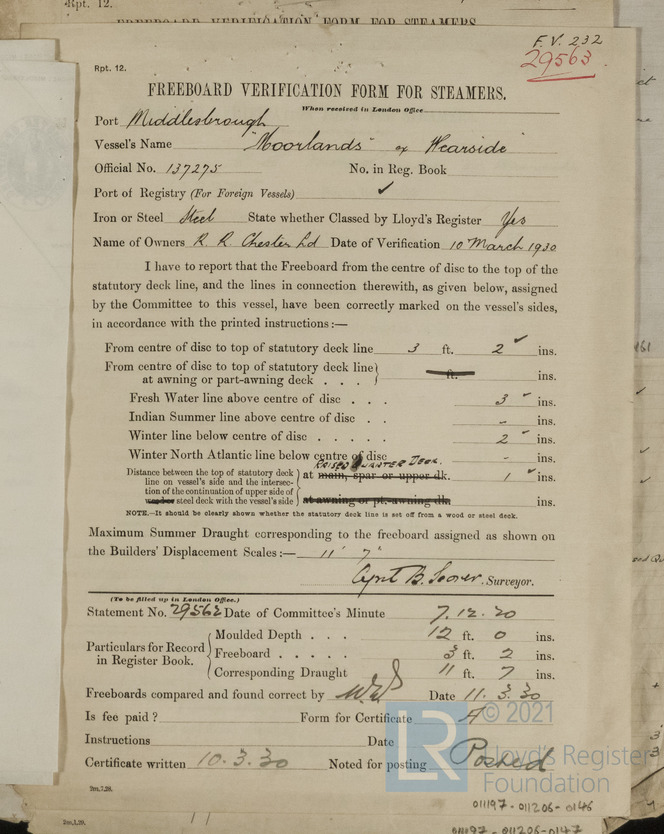 Rpt. 12.
FREEBOARD VERIFICATION FORM FOR STEAMERS
F.V. 232
29563
Rpt. 12.
FREEBOARD VERIFICATION FORM FOR STEAMERS.
When received in London Office
Port Middlesbrough
Vessel's Name "Moorlands" ex Wearside
Official No. 137275 No. in Reg. Book
Port of Registry (For Foreign Vessels) ✓
Iron or Steel Steel State whether Classed by Lloyd's Register Yes
Name of Owners R. R. Chester Ld Date of Verification 10 March 1930
I have to report that the Freeboard from the centre of disc to the top of the
statutory deck line, and the lines in connection therewith, as given below, assigned
by the Committee to this vessel, have been correctly marked on the vessel's sides,
in accordance with the printed instructions:—
From centre of disc to top of statutory deck line 3 ft. 2 ✓ ins.
From centre of disc to top of statutory deck line
at awning or part-awning deck . . . ft. ins.
Fresh Water line above centre of disc . . . 3 ✓ ins.
Indian Summer line above centre of disc . . - ins.
Winter line below centre of disc . . . . . 2 ✓ ins.
Winter North Atlantic line below centre of disc - ins.
RAISED QUARTER DECK.
Distance between the top of statutory deck
line on vessel's side and the intersec-
tion of the continuation of upper side of
steel deck with the vessel's side
at main, spar or upper dk. 1 ✓ ins.
at awning or pt.-awning dk ins.
NOTE.—It should be clearly shown whether the statutory deck line is set off from a wood or steel deck.
Maximum Summer Draught corresponding to the freeboard assigned as shown on
the Builders' Displacement Scales:— 11' 7"
Surveyor.
(To be filled up in London Office.)
Statement No. 29562 Date of Committee's Minute 7.12.20
Particulars for Record
in Register Book.
Moulded Depth . . . 12 ft. 0 ins.
Freeboard . . . . . 3 ft. 2 ins.
Corresponding Draught 11 ft. 7 ins.
Freeboards compared and found correct by Date 11.3.30
Is fee paid? Form for Certificate A
Instructions Date
Certificate written 10.3.30 Noted for posting Posted
2m,7,28.
LR © 2021
Lloyd's Register
Foundation
011197-011206-0146
2m,1,29.
011197-011206-0147